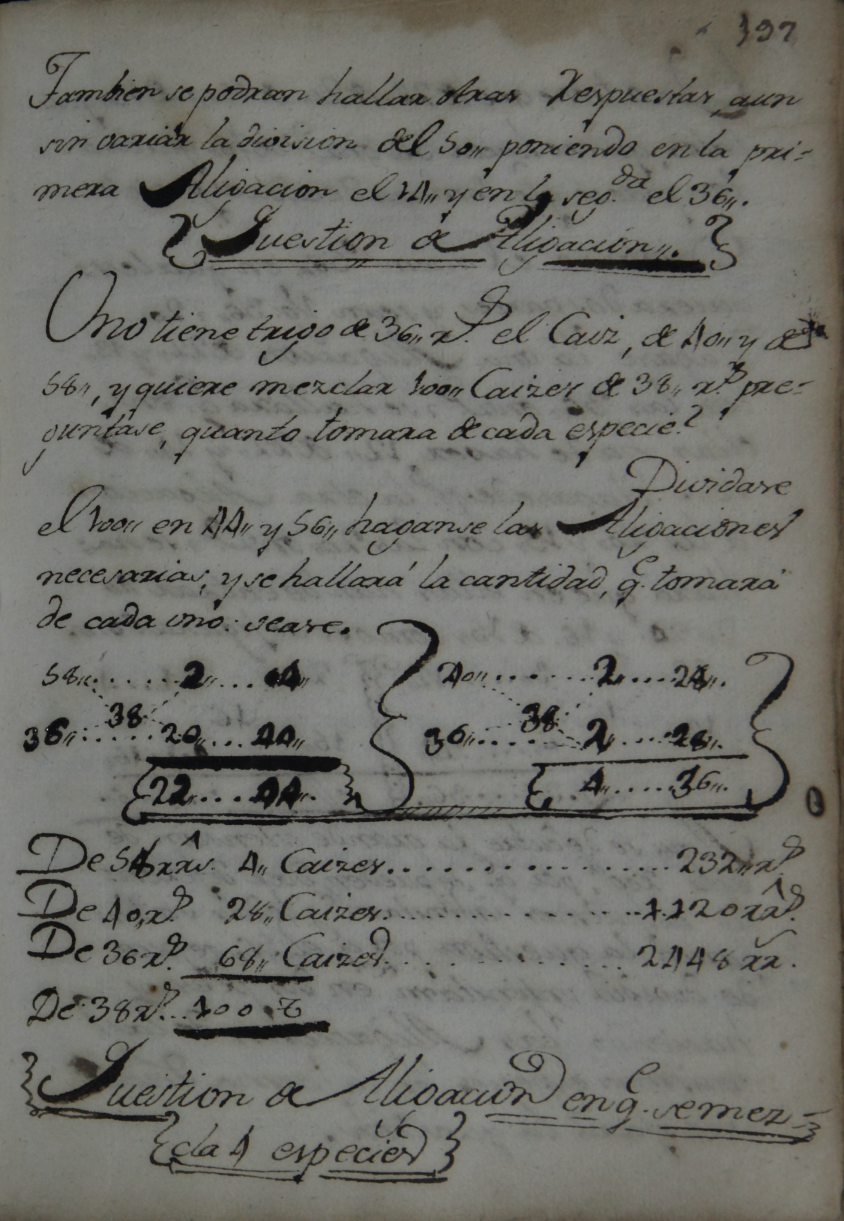 197
Tambien se podran hallar otras Respuestas, aun
sin variar la division del 50,, poniendo en la pri-
mera Aligacion el 14,, y en la seg.da el 36,,.
Question de Aligacion,,.
Uno tiene trigo de 36,, r.s el Caiz, de 40,, y de
58,, y quiere mezclar 100,, Caizes de 38,, r.s pre-
guntase, quanto tomara de cada especie?
Dividase
el 100,, en 44,, y 56,, haganse las Aligaciones
necesarias, y se hallará la cantidad, q.e tomará
de cada uno: sease.
58,, ...... 2,, ... 4,, 40,, ...... 2,, .... 28,,.
38 38
36,, ...... 20,, ... 40,, 36,, ...... 2,, .... 28,,.
22 .... 44,,. 4,, .... 56,,.
De 58 rrs. 4,, Caizes ............ 232,, r.s
De 40,, r.s 28,, Caizes ............ 1120 rr.s
De 36 r.s 68,, Caizes ............ 2448 rr.
De 38 r.s .. 100
Question de Aligacion en q.e se mez-
cla 4 especies